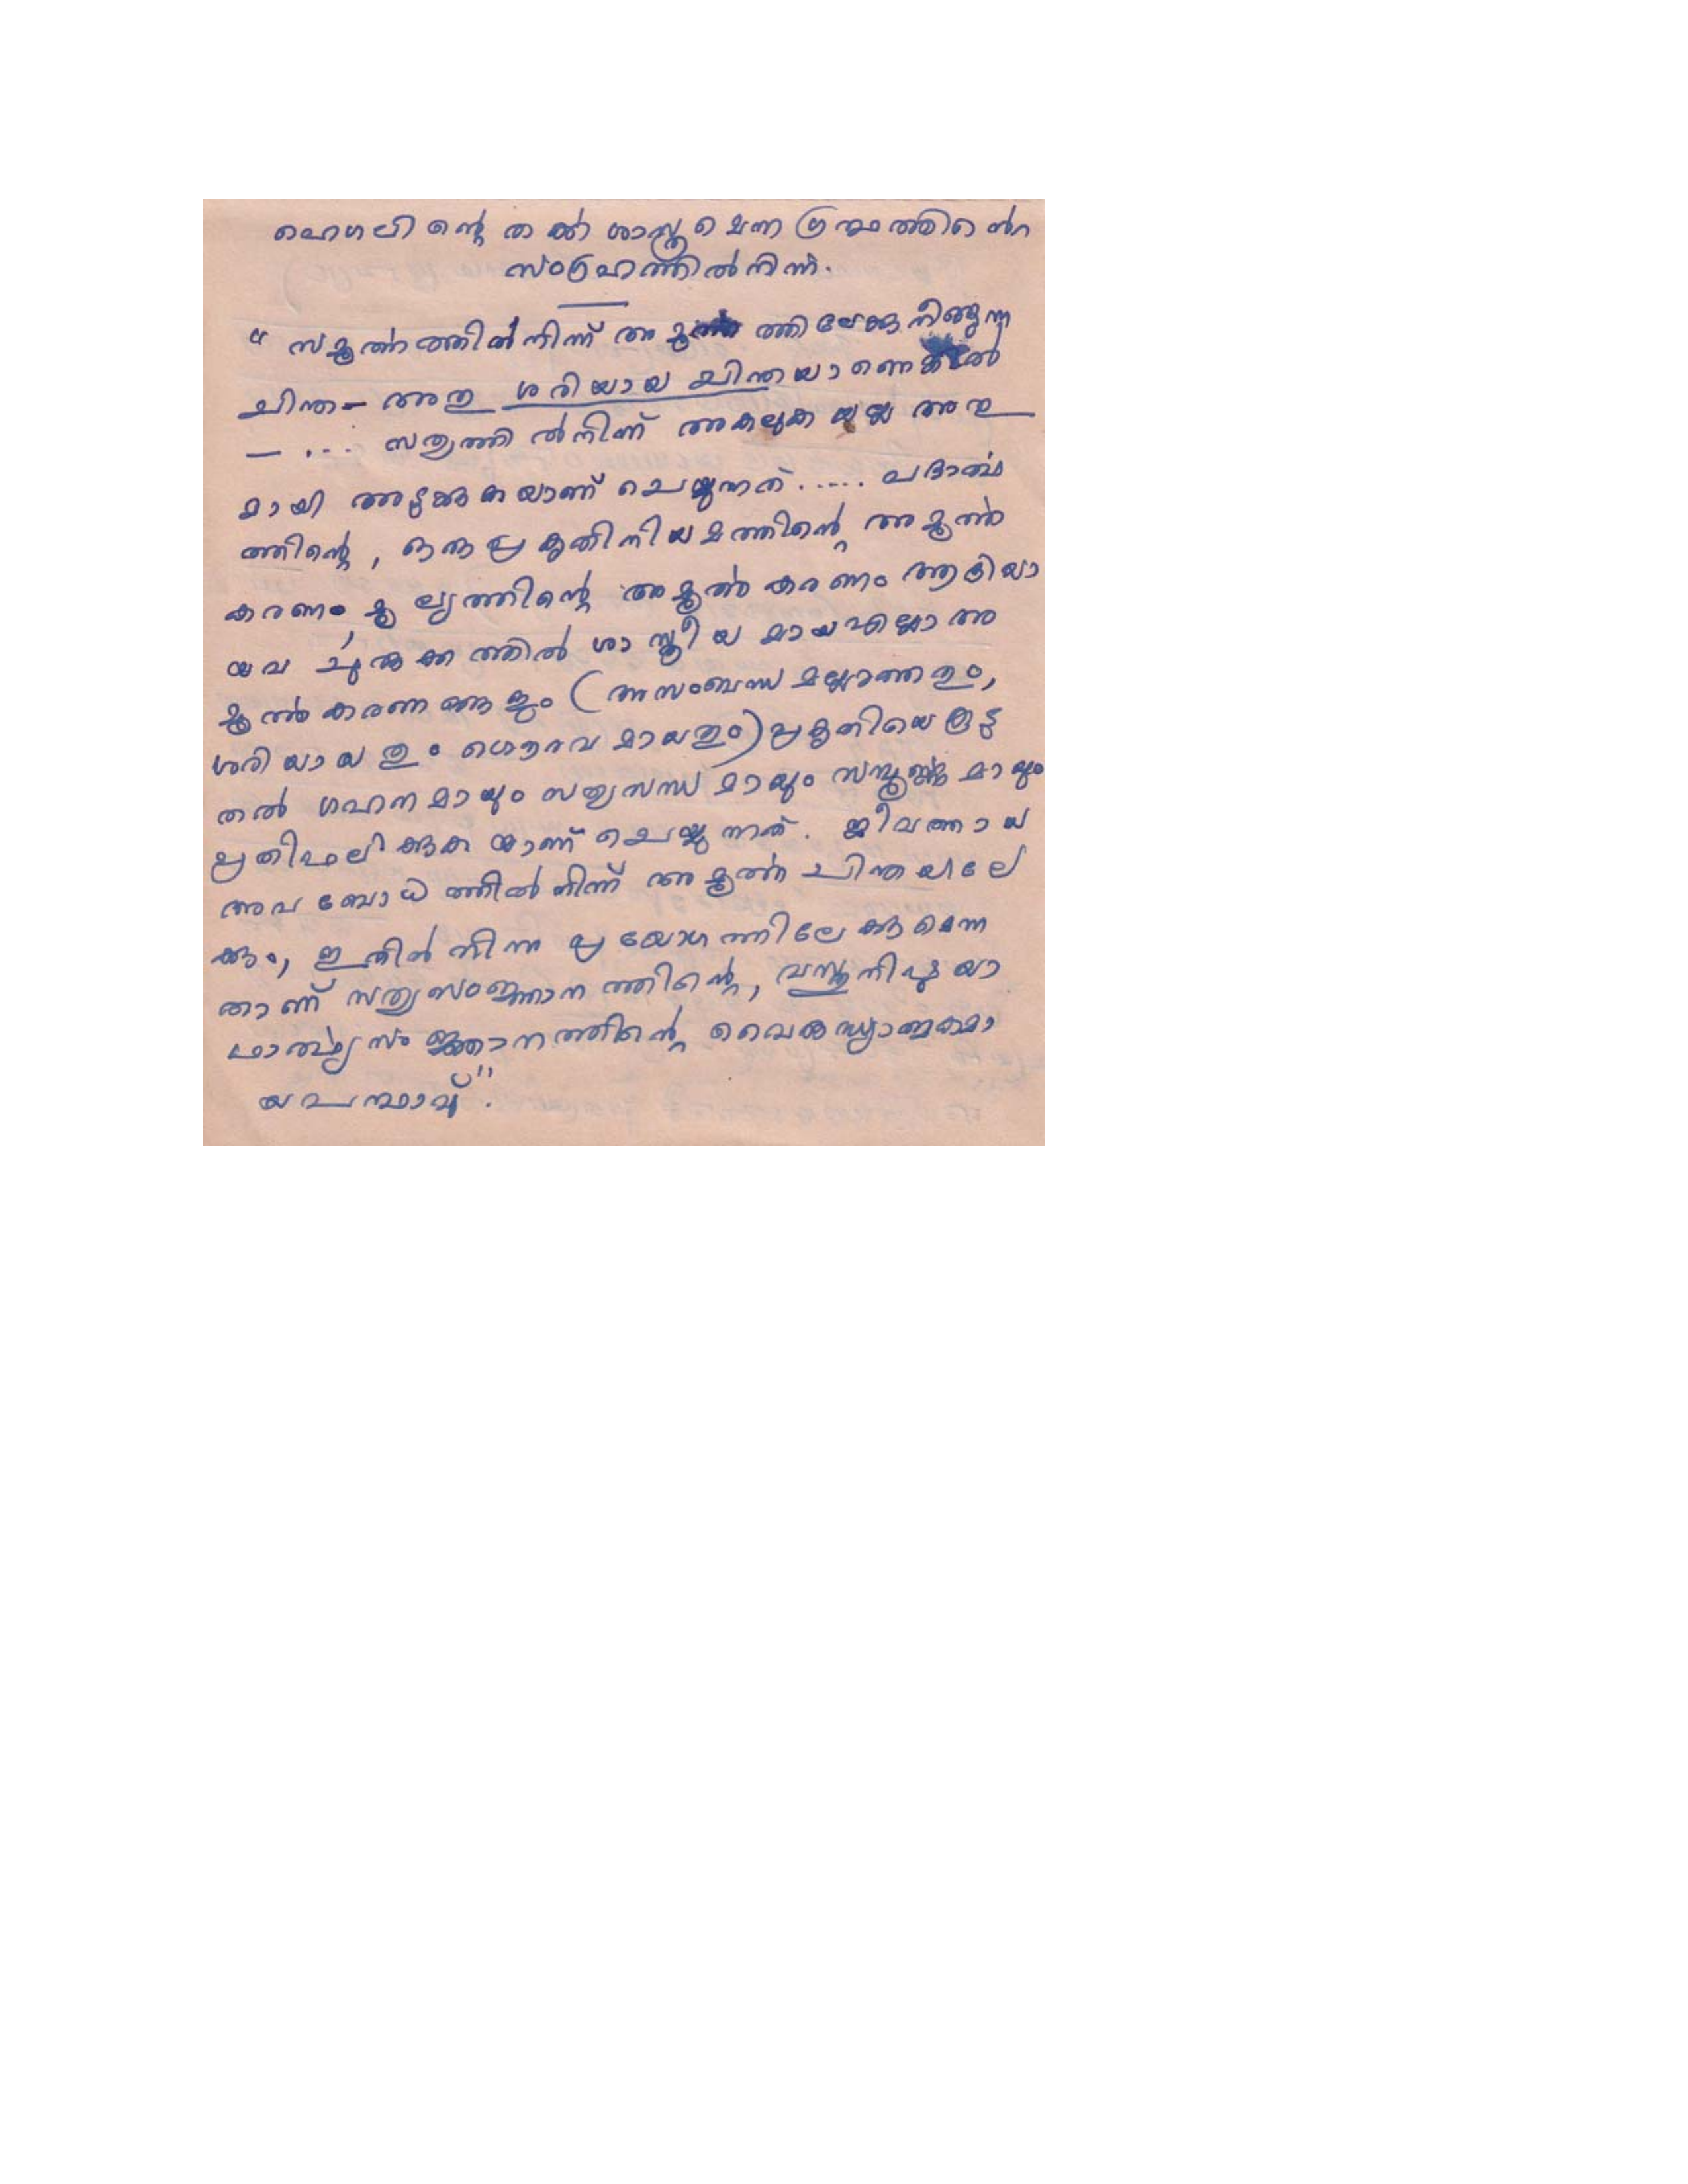 ഹെഗലിന്റെ തർക്കശാസ്ത്രമെന്ന ഗ്രന്ഥത്തിന്റെ
സംഗ്രഹത്തിൽനിന്ന്.
"സമൂർത്തത്തിൽനിന്ന് അമൂർത്തത്തിലേക്കു നീങ്ങുന്ന
ചിന്ത – അതു ശരിയായ ചിന്തയാണെങ്കിൽ
– .... സത്യത്തിൽനിന്ന് അകലുകയല്ല അതു
മായി അടുക്കുകയാണ് ചെയ്യുന്നത്..... പദാർത്ഥ
ത്തിന്റെ, ഒരു പ്രകൃതിനിയമത്തിന്റെ അമൂർത്ത
കരണം, മൂല്യത്തിന്റെ അമൂർത്തകരണം ആദിയാ
യവ ചുരുക്കത്തിൽ ശാസ്ത്രീയമായ എല്ലാ അ
മൂർത്തകരണങ്ങളും (അസംബന്ധമല്ലാത്തതും,
ശരിയായതും ഗൌരവമായതും) പ്രകൃതിയെ കൂടു
തൽ ഗഹനമായും സത്യസന്ധമായും സമ്പൂർണ്ണമായും
പ്രതിഫലിക്കുകയാണ് ചെയ്യുന്നത്. ജീവത്തായ
അവബോധത്തിൽനിന്ന് അമൂർത്ത ചിന്തയിലേ
ക്കും, ഇതിൽ നിന്നു പ്രയോഗത്തിലേക്കുമെന്ന
താണ് സത്യസംജ്ഞാനത്തിന്റെ, വസ്തുനിഷ്ഠയാ
ഥാർത്ഥ്യസംജ്ഞാനത്തിന്റെ വൈരുദ്ധ്യാത്മകമാ
യ പന്ഥാവ്".